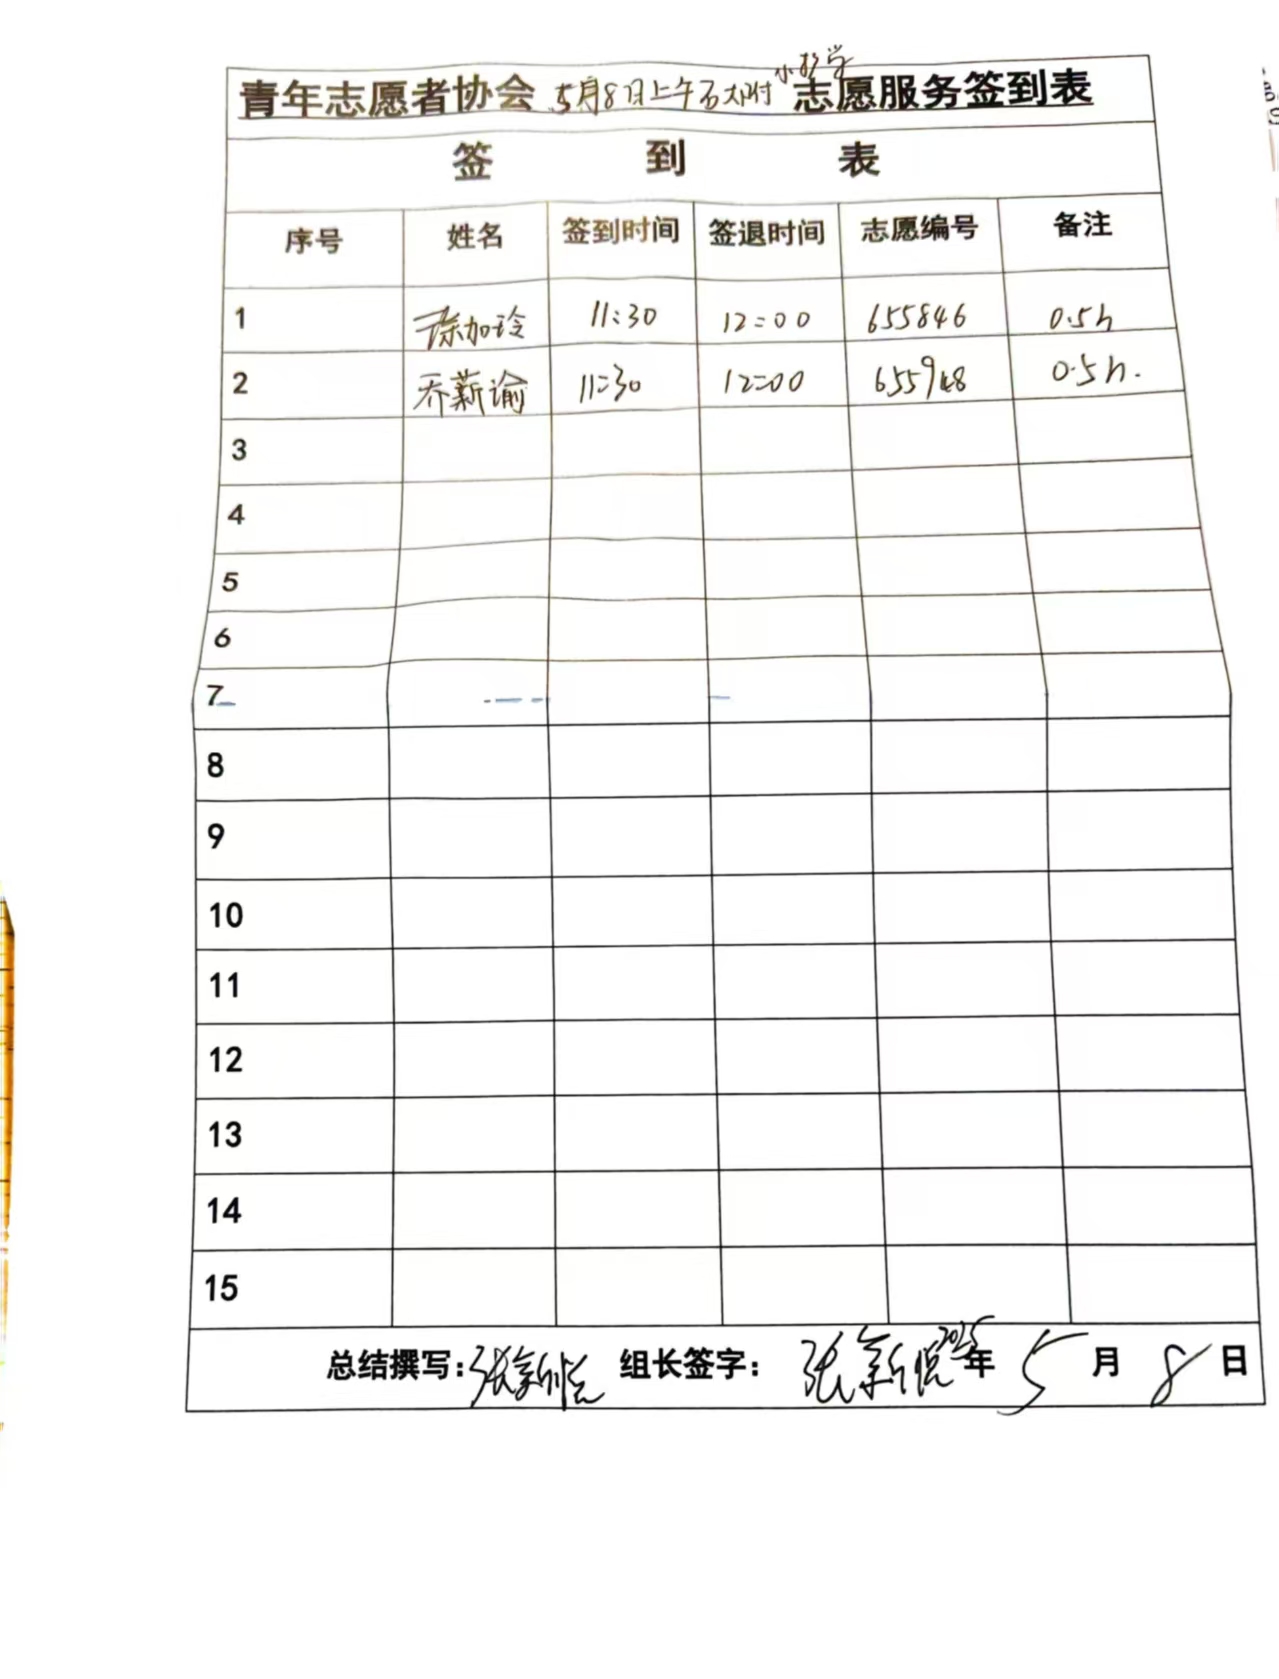 青年志愿者协会 5月8日上午石大附小放学 志愿服务签到表
签 到 表
序号 姓名 签到时间 签退时间 志愿编号 备注
1 加玲 11:30 12:00 655846 0.5h
2 乔薪谕 11:30 12:00 655948 0.5h.
3
4
5
6
7
8
9
10
11
12
13
14
15
总结撰写: 张新悦 组长签字: 张新悦 2025年 5 月 8 日